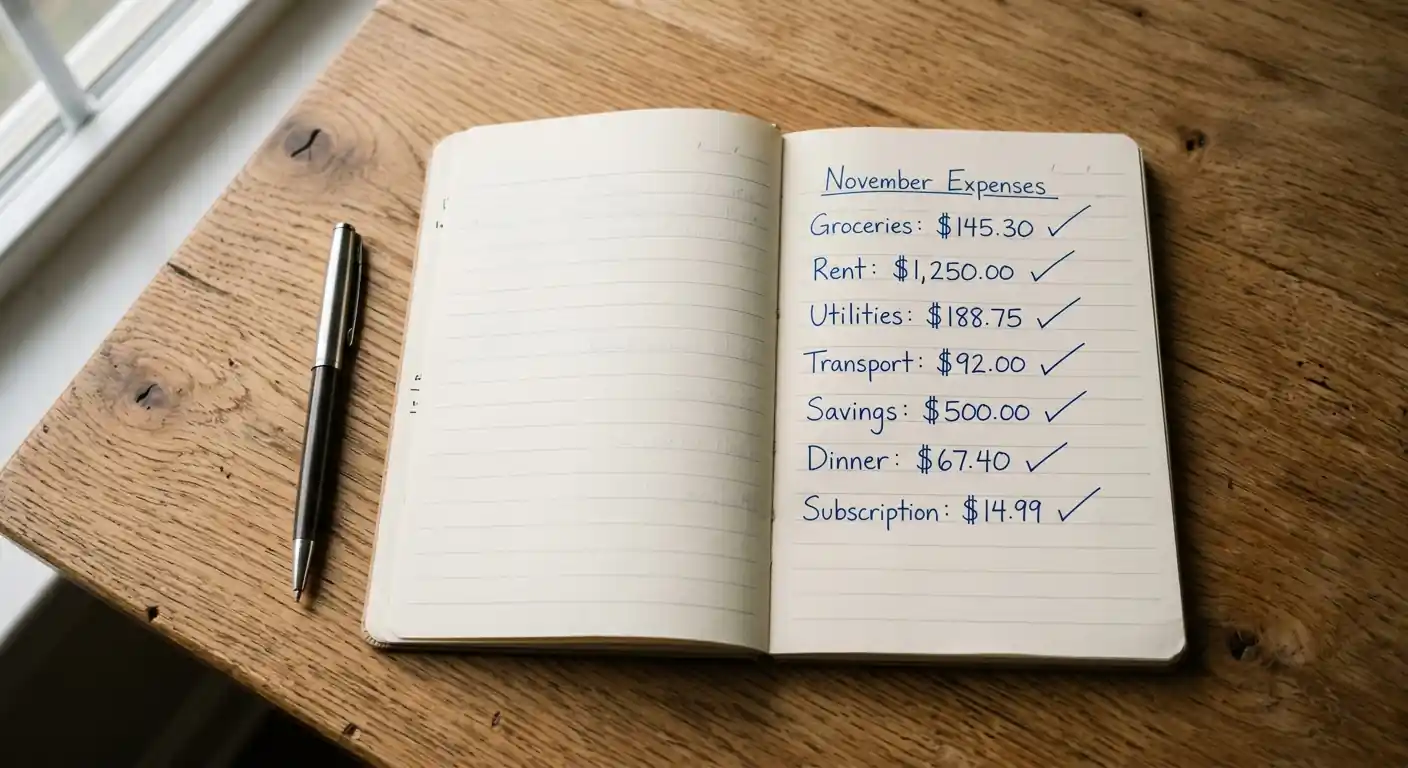 November Expenses
Groceries: $145.30 ✓
Rent: $1,250.00 ✓
Utilities: $188.75 ✓
Transport: $92.00 ✓
Savings: $500.00 ✓
Dinner: $67.40 ✓
Subscription: $14.99 ✓